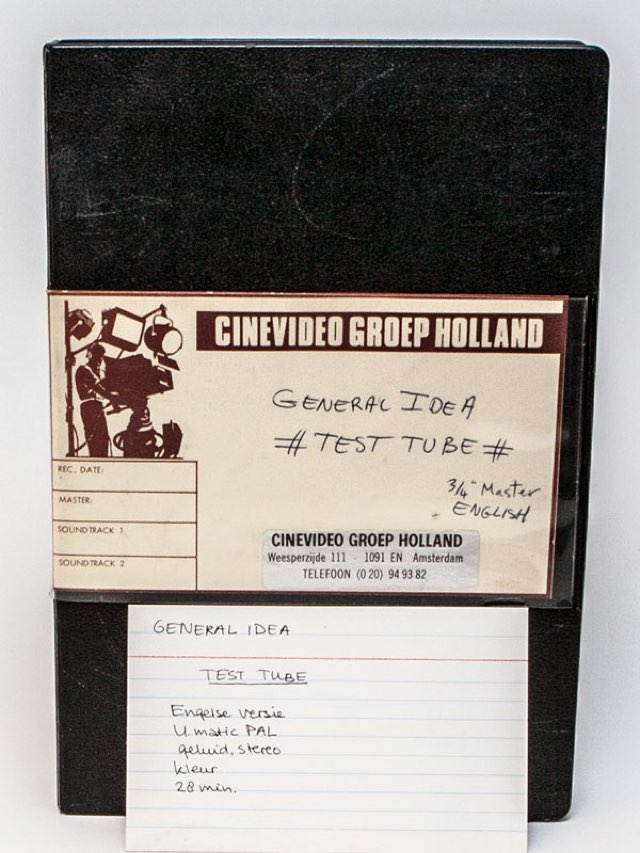 CINEVIDEO GROEP HOLLAND
GENERAL IDEA
# TEST TUBE #
3/4" Master
ENGLISH
REC. DATE:
MASTER:
SOUNDTRACK 1
SOUNDTRACK 2
CINEVIDEO GROEP HOLLAND
Weesperzijde 111 - 1091 EN Amsterdam
TELEFOON (0 20) 94 93 82
GENERAL IDEA
TEST TUBE
Engelse versie
U.matic PAL
geluid, stereo
kleur
28 min.